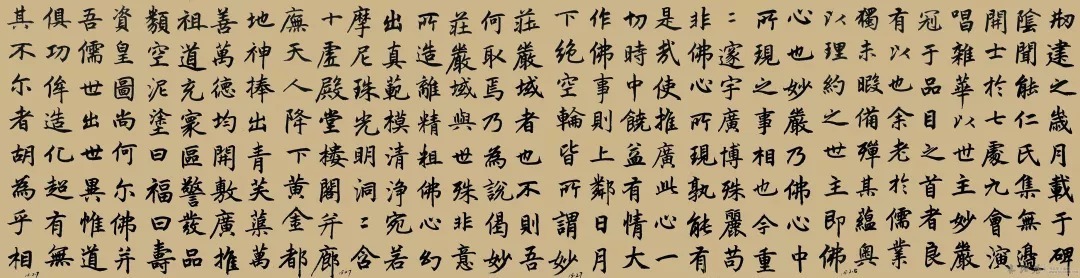 刱建之歲月載于碑
陰聞能仁氏集無邊
開士於七處九會演
唱雜華以世主妙嚴
冠于品目之首者良
有以也余老於儒業
獨未暇備殫其蘊奧
以理約之世主即佛
心也妙嚴乃佛心中
所現之事相也今重
二邃宇廣博殊麗苟
非佛心所現孰能有
是哉使推廣此心一
切時中饒益有情大
作佛事則上鄰日月
下絕空輪皆所謂妙
莊嚴域者也不則吾
何取焉乃為說偈妙
莊嚴域與世殊非意
所造離精粗佛心幻
出真範模清淨宛若
摩尼珠光明洞二含
十虛殿堂樓閣并廊
廡天人降下黃金都
地神捧出青芙蕖萬
善萬德均開敷廣推
祖道充寰區警發品
類空泥塗曰福曰壽
資皇圖尚何尔佛并
吾儒世出世異惟道
俱功侔造化超有無
其不尔者胡為乎相